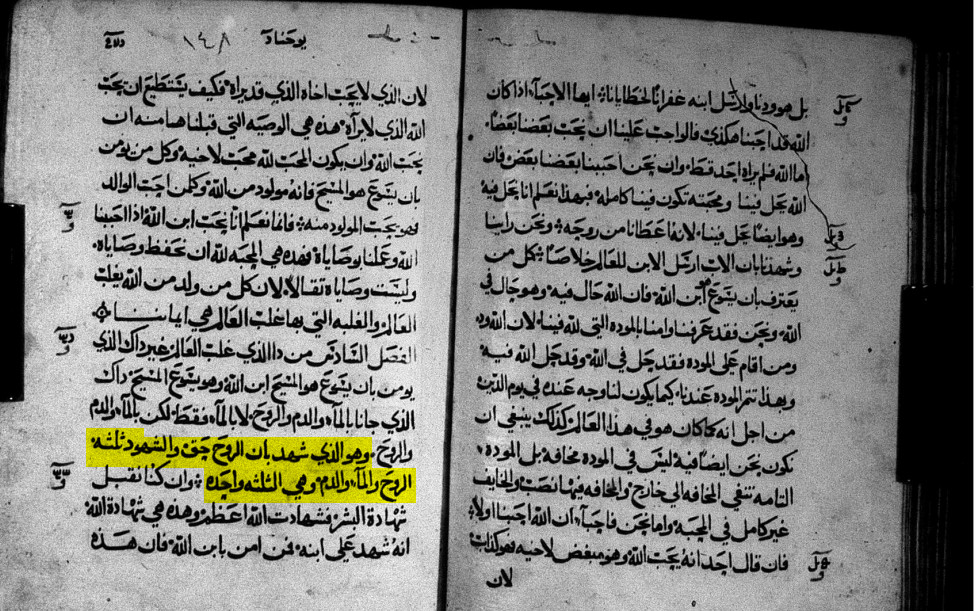 بل هو ودنا وارسل ابنه غفرانًا لخطايانا ايها الاحبآ اذا كان
الله قد احبنا هكذى فالواجب علينا ان نحب بعضنا بعضًا
اما الله فلم يراه احد قط وان نحن احببنا بعضنا بعض فان
الله يحل فينا ومحبته تكون فينا كامله فبهذا نعلم انا نحل فيه
وهو ايضًا يحل فينا لانه اعطانا من روحه ونحن راينا
وشهدنا بان الاب ارسل الابن للعالم خلاصًا فكل من
يعترف بان يسوع هو ابن الله فان الله حال فيه وهو حال في
الله ونحن فقد عرفنا وامنا بالموده التي لله فينا لان الله ود
ومن اقام على الموده فقد حل في الله وقد حل الله فيه
وبهذا تتم الموده عندنا كما يكون لنا وجه عنده في يوم الدين
من اجل انه كما كان هو في هذا العالم كذلك ينبغي ان
نكون نحن ايضًا فيه ليس في الموده مخافه بل الموده
التامه تنفي المخافه الى خارج والمخافه فيها نصب والخايف
غير كامل في المحبه واما نحن فاحبآ ان الله احبنا اولا
فان قال احد انه يحب الله وهو مبغض لاخيه فهو كذاب
لان
يوحنا ١٤٨
لان الذي لا يحب اخاه الذي قد يراه فكيف يستطيع ان يحب
الله الذي لا يرآه هذه هي الوصيه التي قبلناها منه ان
نحب الله وان يكون المحب لله محب لاخيه وكل من يومن
بان يسوع هو المسيح فانه مولود من الله وكلمن احب الوالد
فهو يحب المولود منه فانما نعلم انا نحب ابن الله اذا احببنا
الله وعملنا بوصاياه فهذه هي المحبه لله ان نحفظ وصاياه
وليست وصاياه ثقالا لان كل من ولد من الله يغلب
العالم والغلبه التي بها غلب العالم هي ايماننا
الفصل السادس من ذا الذي غلب العالم غير ذاك الذي
يومن بان يسوع هو المسيح ابن الله وهو يسوع المسيح ذاك
الذي جانا بالمآ والدم والروح لا بالمآ فقط لكن بالمآ والدم
والروح وهو الذي شهد بان الروح حق والشهود ثلثه
الروح والمآ والدم وهي الثلثه واحده وان كنا نقبل
شهادة البشر فشهادت الله اعظم وهذه هي شهادة الله
انه شهد على ابنه فمن امن بابن الله فان هذه